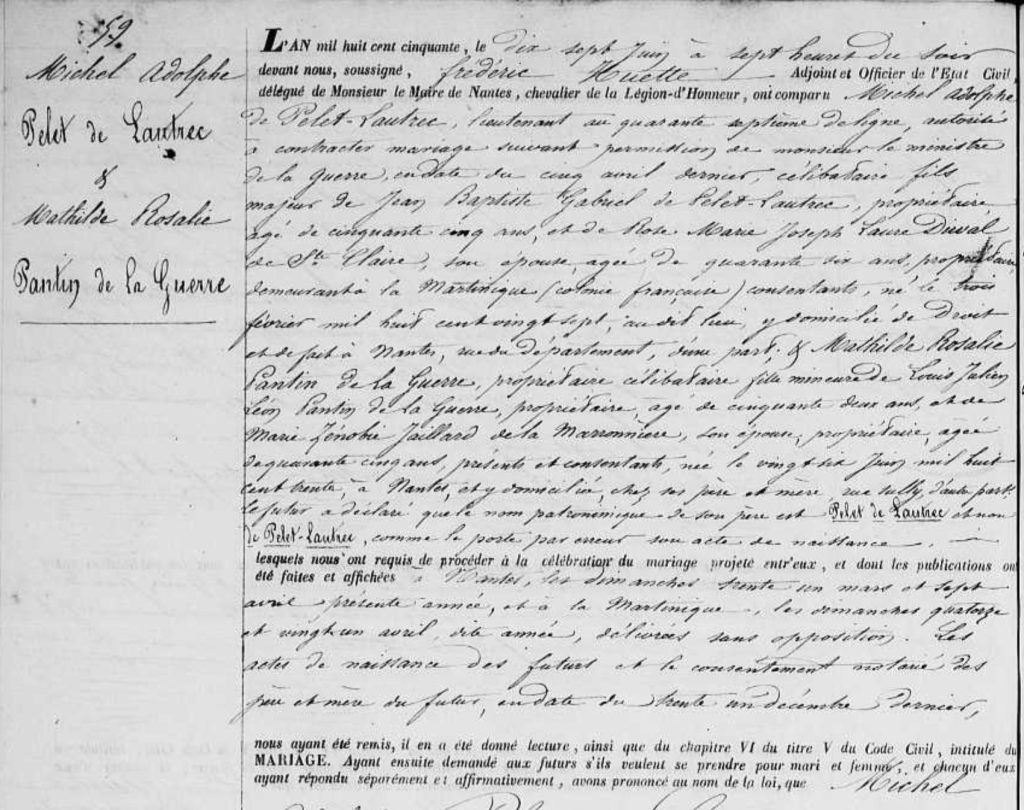 59.
Michel Adolphe
Pelet de Lautrec
&
Mathilde Rosalie
Pantin de la Guerre
L'AN mil huit cent cinquante, le dix sept Juin à sept heures du soir
devant nous, soussigné, frédéric Huette Adjoint et Officier de l'Etat Civil,
délégué de Monsieur le Maire de Nantes, chevalier de la Légion-d'Honneur, ont comparu Michel Adolphe
de Pelet-Lautrec, lieutenant au quarante septième de ligne, autorisé
à contracter mariage suivant permission de monsieur le ministre
de la guerre, en date du cinq avril dernier, célibataire fils
majeur de Jean Baptiste Gabriel de Pelet-Lautrec, propriétaire
agé de cinquante cinq ans, et de Rose Marie Joseph Laure Duval
de Ste Claire, son épouse, agée de quarante six ans, propriétaire,
demeurant à la Martinique (colonie française) consentants, né le trois
février mil huit cent vingt sept, au dit lieu, y domicilié de Droit
et de fait à Nantes, rue du département, d'une part; & Mathilde Rosalie
Pantin de la Guerre, propriétaire célibataire fille mineure de Louis Julien
Léon Pantin de la Guerre, propriétaire, agé de cinquante deux ans, et de
Marie Zénobie Jaillard de la Marronnière, son épouse, propriétaire, agée
de quarante cinq ans, présents et consentants, née le vingt six Juin mil huit
cent trente, à Nantes, et y domiciliée, chez ses père et mère, rue Sully, d'autre part.
Le futur a déclaré que le nom patronimique de son père est Pelet de Lautrec et non
de Pelet-Lautrec, comme le porte par erreur son acte de naissance.
lesquels nous ont requis de procéder à la célébration du mariage projeté entr'eux, et dont les publications ont
été faites et affichées à Nantes, les dimanches trente un mars et sept
avril présente année, et à la Martinique, les dimanches quatorze
et vingt un avril, dite année, délivrées sans opposition. Les
actes de naissance des futurs et le consentement notarié des
père et mère du futur, en date du trente un décembre dernier,
nous ayant été remis, il en a été donné lecture, ainsi que du chapitre VI du titre V du Code Civil, intitulé du
MARIAGE. Ayant ensuite demandé aux futurs s'ils veulent se prendre pour mari et femme, et chacun d'eux
ayant répondu séparément et affirmativement, avons prononcé au nom de la loi, que Michel